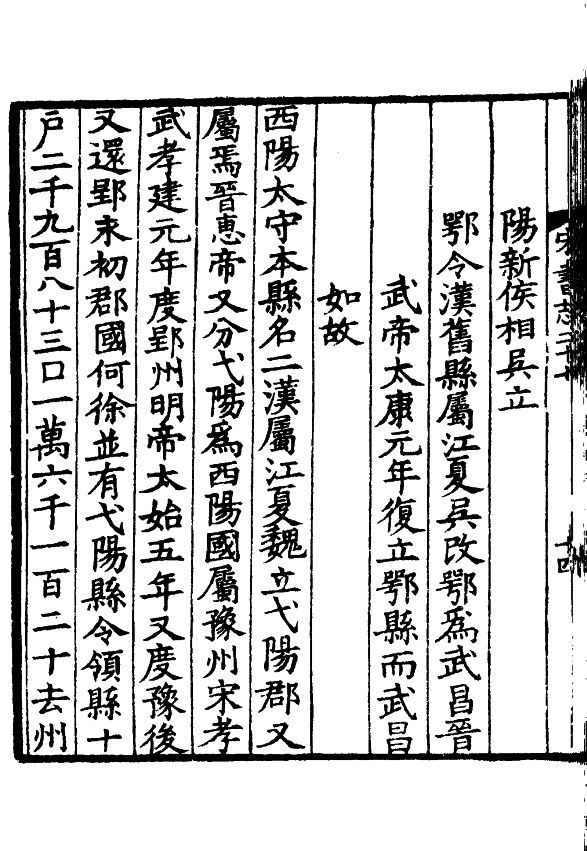 陽新侯相吳立
鄂令漢舊縣屬江夏吳改鄂爲武昌晉
武帝太康元年復立鄂縣而武昌
如故
西陽太守本縣名二漢屬江夏魏立弋陽郡又
屬焉晉惠帝又分弋陽爲西陽國屬豫州宋孝
武孝建元年度郢州明帝太始五年又度豫後
又還郢永初郡國何徐並有弋陽縣令領縣十
戶二千九百八十三口一萬六千一百二十去州